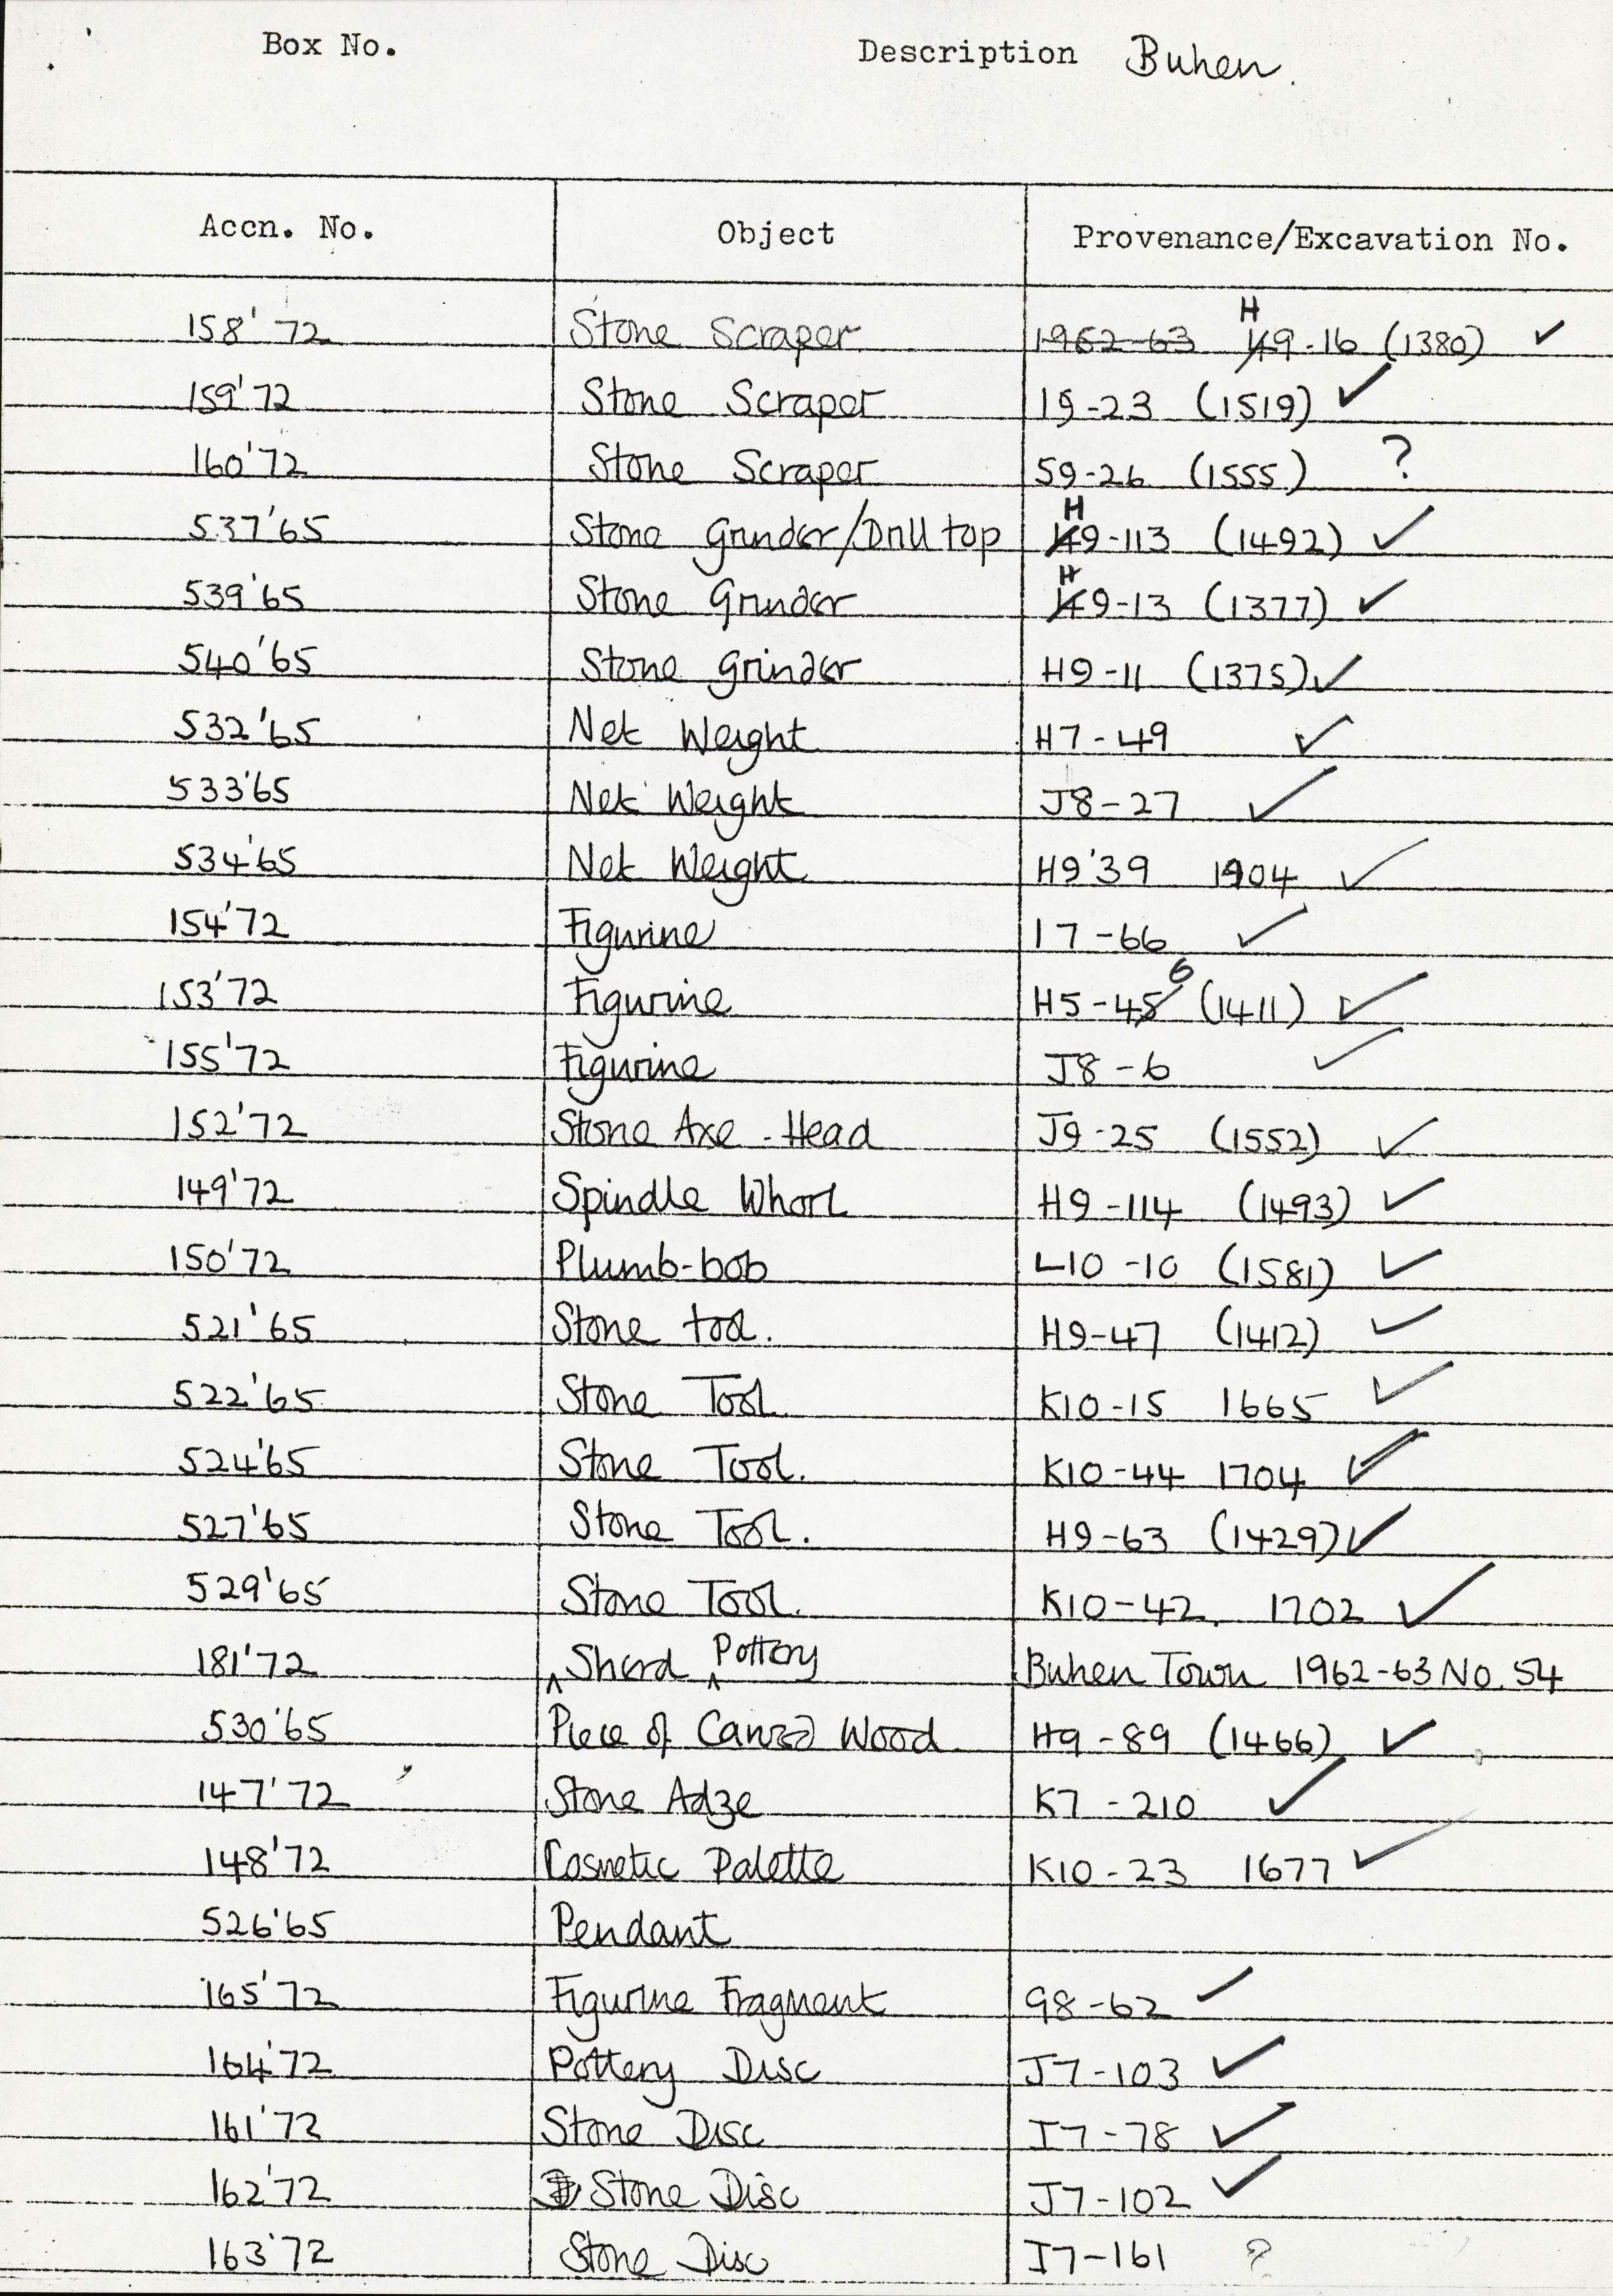 Box No. Description Buhen.
Accn. No. Object Provenance/Excavation No.
158'72 Stone Scraper 1962-63 H9-16 (1380) ✓
159'72 Stone Scraper 19-23 (1519) ✓
160'72 Stone Scraper 59-26 (1555) ?
537'65 Stone Grinder/Drill top H9-113 (1492) ✓
539'65 Stone Grinder H9-13 (1377) ✓
540'65 Stone Grinder H9-11 (1375) ✓
532'65 Net Weight H7-49 ✓
533'65 Net Weight J8-27 ✓
534'65 Net Weight H9'39 1904 ✓
154'72 Figurine 17-66 ✓
153'72 Figurine H5-46 (1411) ✓
155'72 Figurine J8-6 ✓
152'72 Stone Axe-Head J9-25 (1552) ✓
149'72 Spindle Whorl H9-114 (1493) ✓
150'72 Plumb-bob L10-10 (1581) ✓
521'65 Stone tool. H9-47 (1412) ✓
522'65 Stone Tool K10-15 1665 ✓
524'65 Stone Tool. K10-44 1704 ✓
527'65 Stone Tool. H9-63 (1429) ✓
529'65 Stone Tool. K10-42. 1702 ✓
181'72 Sherd Pottery Buhen Town 1962-63 No. 54
530'65 Piece of Carved Wood H9-89 (1466) ✓
147'72 Stone Adze K7-210 ✓
148'72 Cosmetic Palette K10-23 1677 ✓
526'65 Pendant
165'72 Figurine Fragment G8-62 ✓
164'72 Pottery Disc J7-103 ✓
161'72 Stone Disc I7-78 ✓
162'72 Stone Disc J7-102 ✓
163'72 Stone Disc I7-161 ?